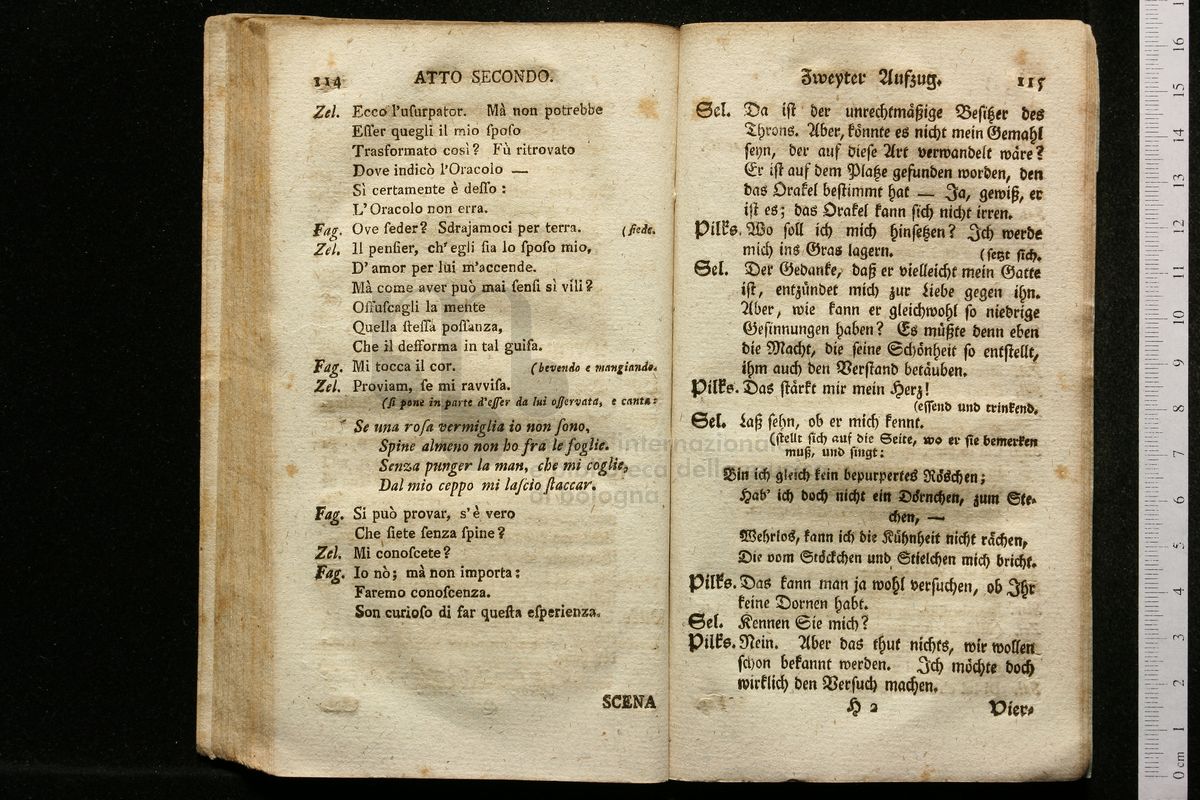 114 ATTO SECONDO.
Zel. Ecco l'uſurpator. Mà non potrebbe
Eſſer quegli il mio ſpoſo
Trasformato così? Fù ritrovato
Dove indicò l'Oracolo —
Sì certamente è deſſo:
L'Oracolo non erra.
Fag. Ove ſeder? Sdrajamoci per terra. (ſiede.
Zel. Il penſier, ch'egli ſia lo ſpoſo mio,
D'amor per lui m'accende.
Mà come aver può mai ſenſi sì vili?
Offuſcagli la mente
Quella ſteſſa poſſanza,
Che il defforma in tal guiſa.
Fag. Mi tocca il cor. (bevendo e mangiando.
Zel. Proviam, ſe mi ravviſa.
(ſi pone in parte d'eſſer da lui oſſervata, e canta:
Se una roſa vermiglia io non ſono,
Spine almeno non ho fra le foglie.
Senza punger la man, che mi coglie,
Dal mio ceppo mi laſcio ſtaccar.
Fag. Si può provar, s'è vero
Che ſiete ſenza ſpine?
Zel. Mi conoſcete?
Fag. Io nò; mà non importa:
Faremo conoſcenza.
Son curioſo di far queſta eſperienza.
SCENA
Zweyter Aufzug. 115
Sel. Da iſt der unrechtmäßige Beſitzer des
Throns. Aber, könnte es nicht mein Gemahl
ſeyn, der auf dieſe Art verwandelt wäre?
Er iſt auf dem Platze gefunden worden, den
das Orakel beſtimmt hat — Ja, gewiß, er
iſt es; das Orakel kann ſich nicht irren.
Pilks. Wo ſoll ich mich hinſetzen? Ich werde
mich ins Gras lagern. (ſetzt ſich.
Sel. Der Gedanke, daß er vielleicht mein Gatte
iſt, entzündet mich zur Liebe gegen ihn.
Aber, wie kann er gleichwohl ſo niedrige
Geſinnungen haben? Es müßte denn eben
die Macht, die ſeine Schönheit ſo entſtellt,
ihm auch den Verſtand betäuben.
Pilks. Das ſtärkt mir mein Herz!
(eſſend und trinkend.
Sel. Laß ſehn, ob er mich kennt.
(ſtellt ſich auf die Seite, wo er ſie bemerken
muß, und ſingt:
Bin ich gleich kein bepurpertes Röschen;
Hab' ich doch nicht ein Dörnchen, zum Ste-
chen, —
Wehrlos, kann ich die Kühnheit nicht rächen,
Die vom Stöckchen und Stielchen mich bricht.
Pilks. Das kann man ja wohl verſuchen, ob Ihr
keine Dornen habt.
Sel. Kennen Sie mich?
Pilks. Nein. Aber das thut nichts, wir wollen
ſchon bekannt werden. Ich möchte doch
wirklich den Verſuch machen.
H 2 Vier-